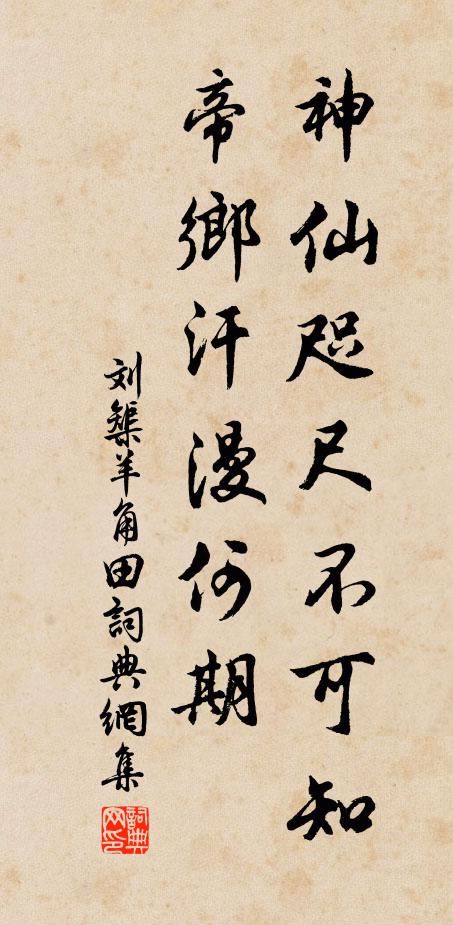 神仙咫尺不可知
帝鄉汗漫何期
刘鎜羊角田詞典網集
詞典
网印